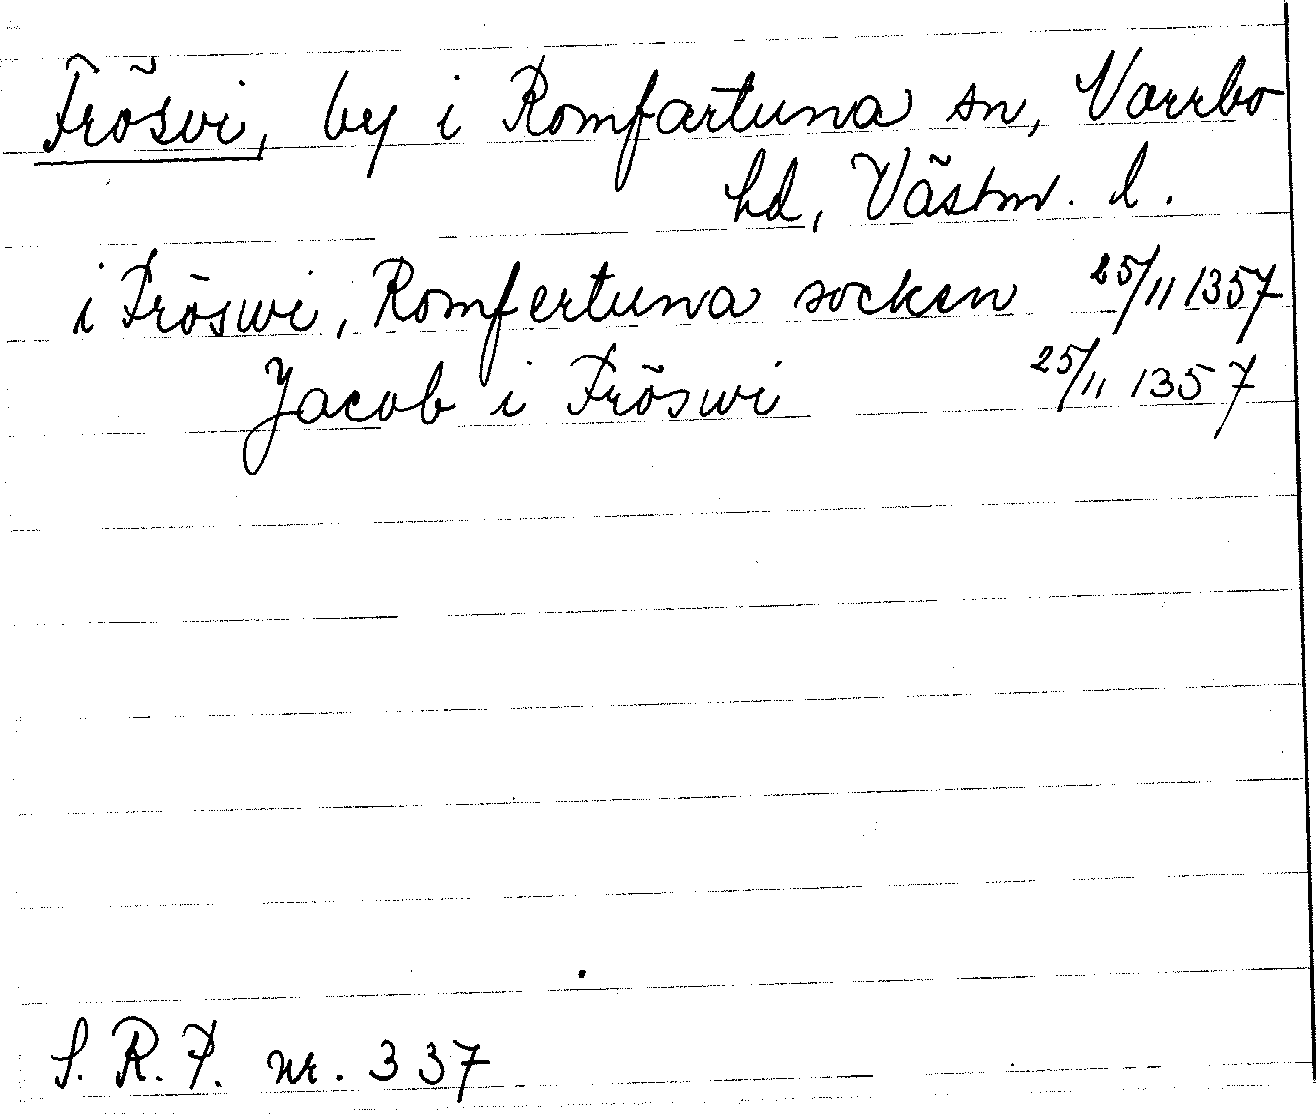 Frösvi, by i Romfartuna sn, Norrbo
hd, Västm. l.
i Fröswi, Romfertuna socken 25/11 1357
Jacob i Fröswi 25/11 1357
S. R. P. nr. 337